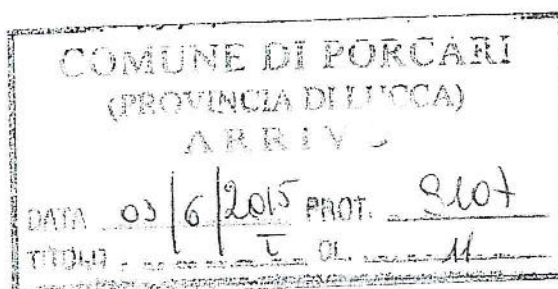 COMUNE DI PORCARI
(PROVINCIA DI LUCCA)
ARRIVO
DATA 03/6/2015 PROT.
I CL. 11